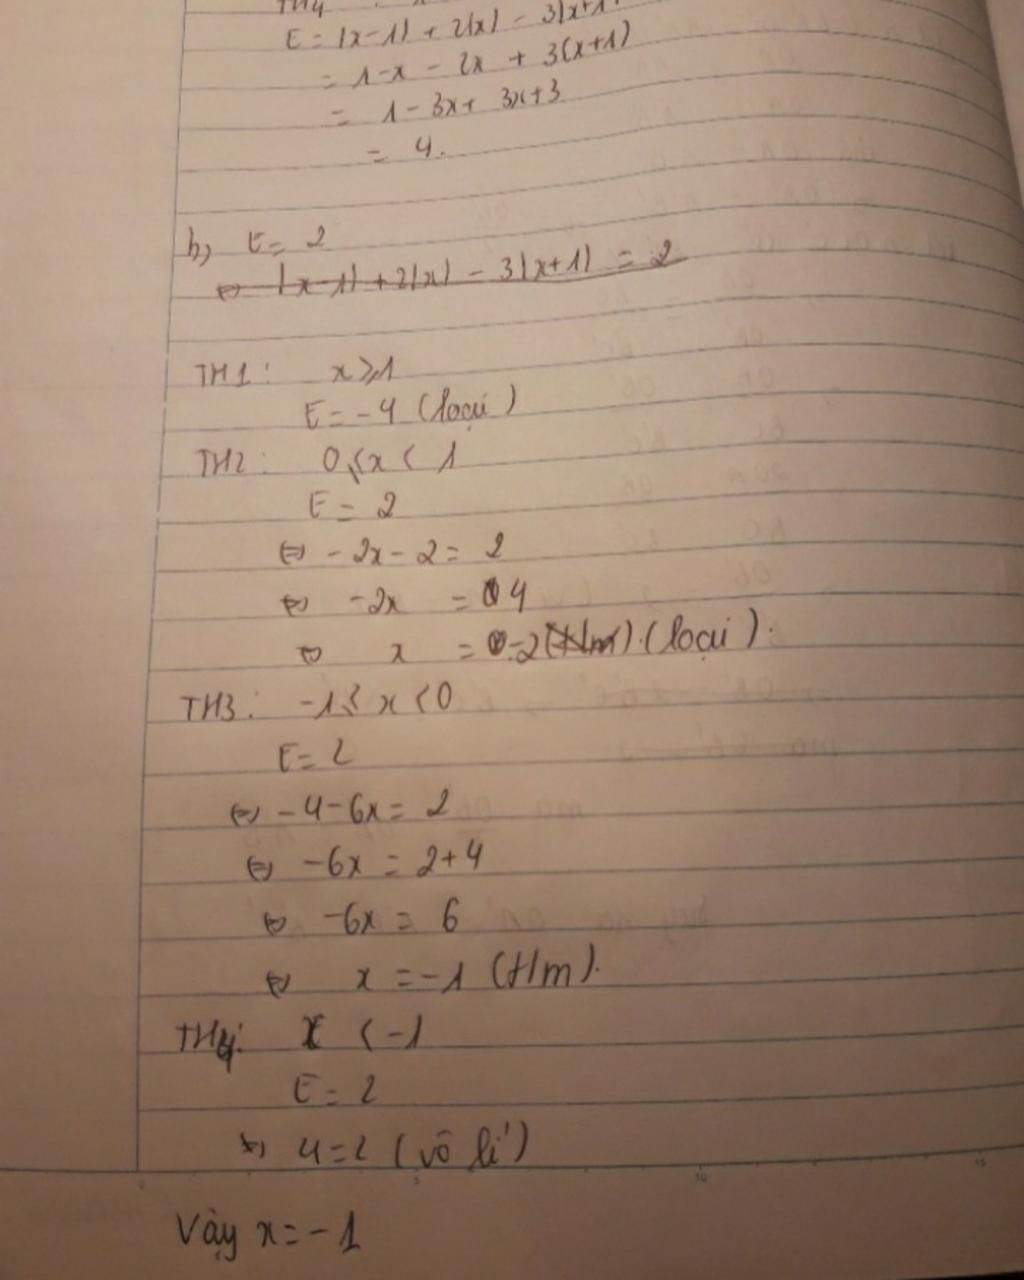 TH4
E = |x-1| + 2|x| - 3|x+1|
= 1-x - 2x + 3(x+1)
= 1 - 3x + 3x+3
= 4.
b, E = 2
⇔ |x-1| + 2|x| - 3|x+1| = 2
TH1: x ≥ 1
E = -4 (loại)
TH2: 0 ≤ x < 1
E = 2
⇔ -2x - 2 = 2
⇔ -2x = 4
⇔ x = -2 (t/m). (loại).
TH3: -1 ≤ x < 0
E = 2
⇔ -4-6x = 2
⇔ -6x = 2+4
⇔ -6x = 6
⇔ x = -1 (t/m).
TH4: x < -1
E = 2
⇔ 4=2 (vô lí)
0 5 10 15
Vậy x = -1